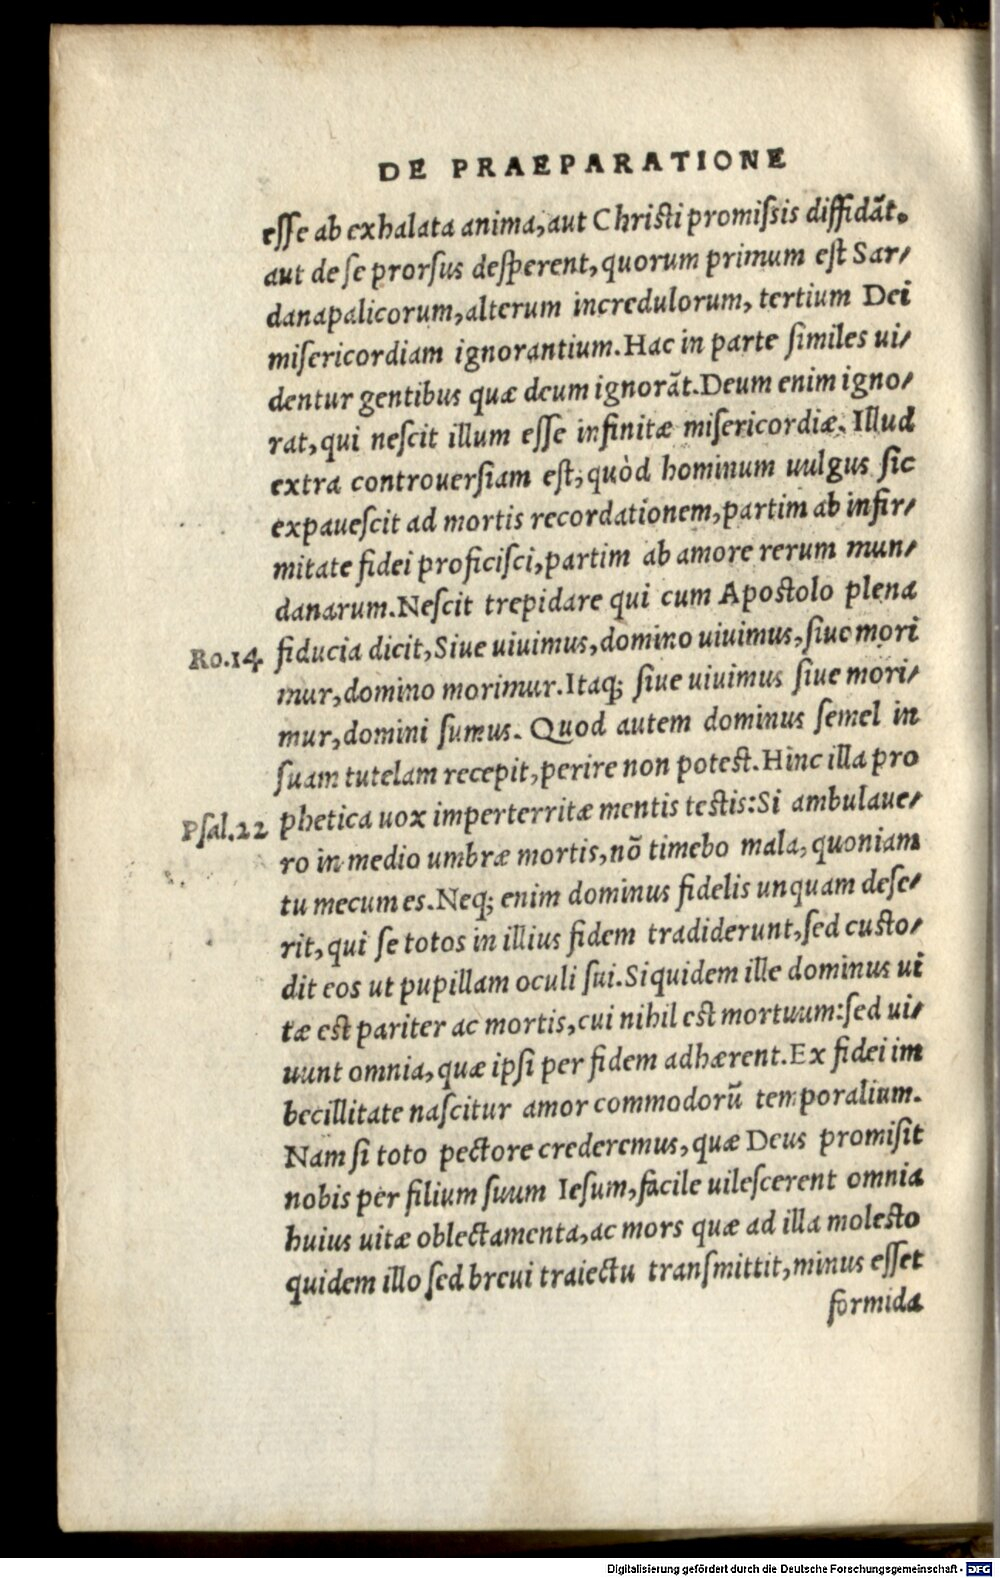 DE PRAEPARATIONE
esſe ab exhalata anima, aut Chriſti promiſsis diffidāt.
aut de ſe prorſus deſperent, quorum primum eſt Sar/
danapalicorum, alterum incredulorum, tertium Dei
miſericordiam ignorantium. Hac in parte ſimiles ui/
dentur gentibus quæ deum ignorāt. Deum enim igno/
rat, qui neſcit illum eſſe infinitæ miſericordiæ. Illud
extra controuerſiam eſt, quòd hominum uulgus ſic
expaueſcit ad mortis recordationem, partim ab infir/
mitate fidei proficiſci, partim ab amore rerum mun/
danarum. Neſcit trepidare qui cum Apoſtolo plena
Ro.14. fiducia dicit, Siue uiuimus, domino uiuimus, ſiue mori
mur, domino morimur. Itaq; ſiue uiuimus ſiue mori/
mur, domini ſumus. Quod autem dominus ſemel in
ſuam tutelam recepit, perire non poteſt. Hinc illa pro
Pſal.22 phetica uox imperterritæ mentis teſtis: Si ambulaue/
ro in medio umbræ mortis, nō timebo mala, quoniam
tu mecum es. Neq; enim dominus fidelis unquam deſe/
rit, qui ſe totos in illius fidem tradiderunt, ſed cuſto/
dit eos ut pupillam oculi ſui. Siquidem ille dominus ui
tæ eſt pariter ac mortis, cui nihil eſt mortuum: ſed ui/
uunt omnia, quæ ipſi per fidem adhærent. Ex fidei im
becillitate naſcitur amor commodorū temporalium.
Nam ſi toto pectore crederemus, quæ Deus promiſit
nobis per filium ſuum Ieſum, facile uileſcerent omnia
huius uitæ oblectamenta, ac mors quæ ad illa moleſto
quidem illo ſed breui traiectu tranſmittit, minus eſſet
formida
Digitalisierung gefördert durch die Deutsche Forschungsgemeinschaft - DFG